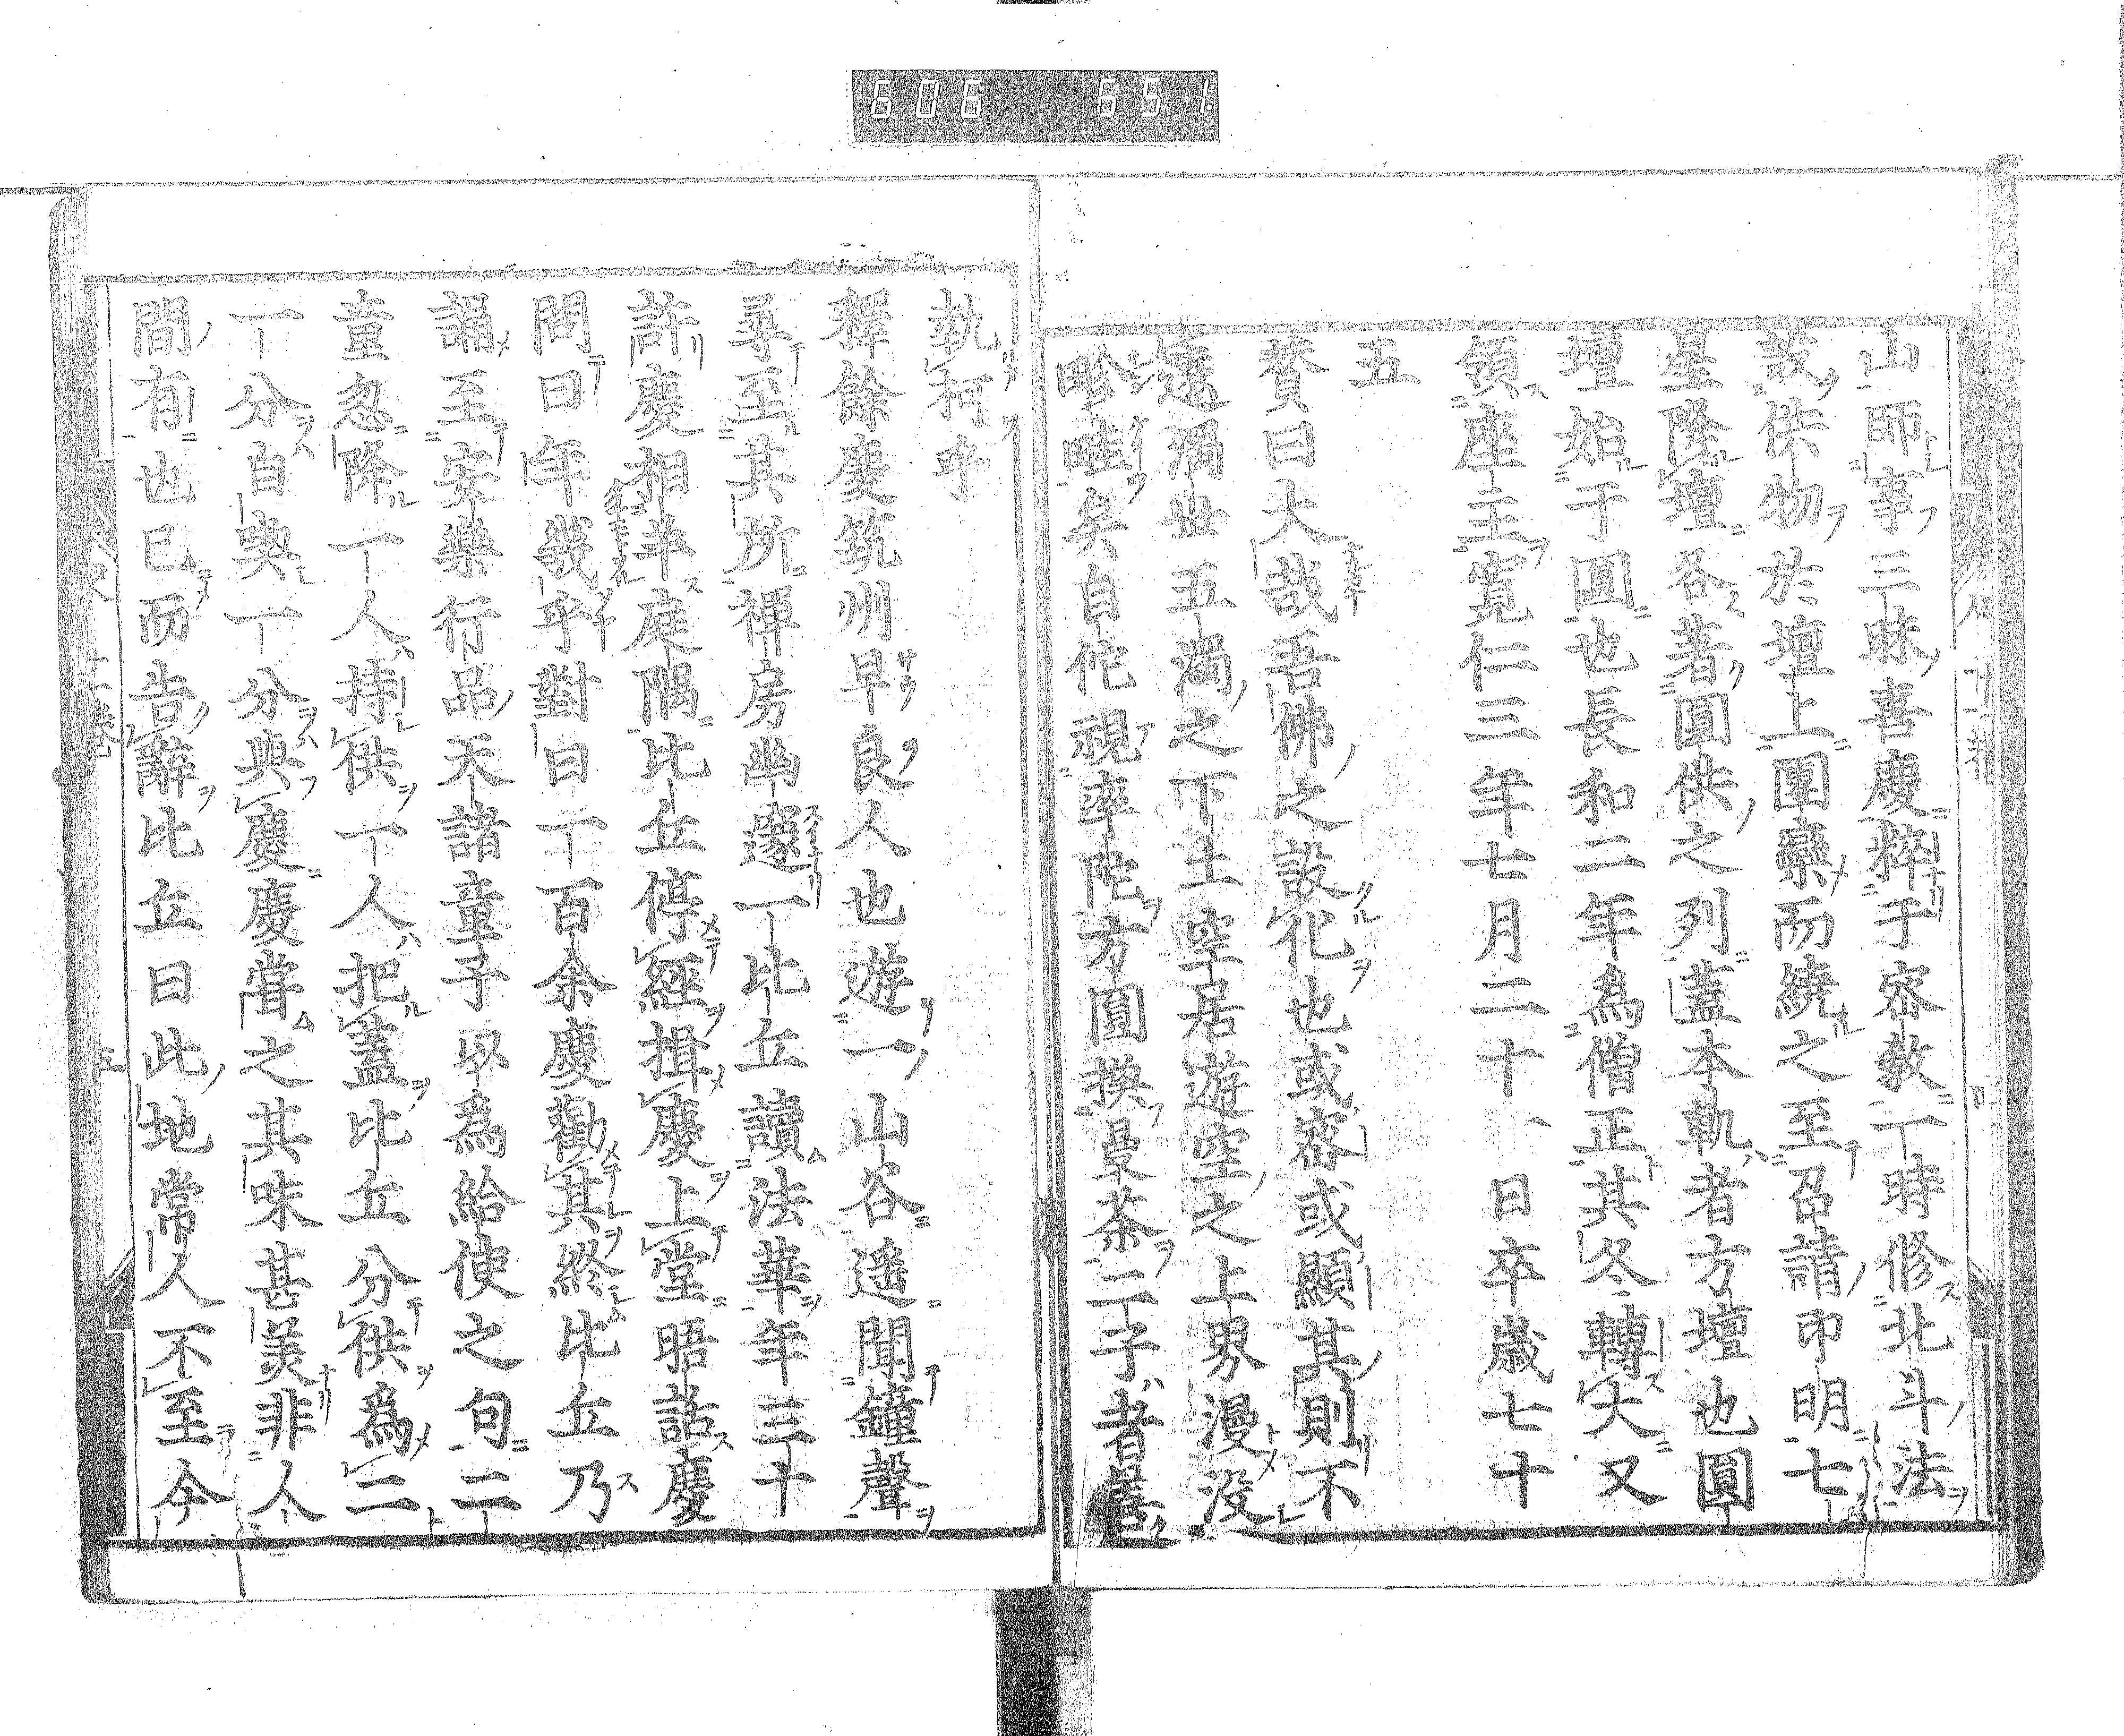 606 651
山師事三昧喜慶粹于密教一時修北斗法
設供物於壇上圍欒而繞之至召請印明七
星降壇各著圓供之列蓋本軌者方壇也圓
壇始于圓也長和二年為僧正其冬轉大又
領座主寬仁三年七月二十、日卒歲七十
五
賛曰大哉吾佛之設化也或密或顯其則不
遠濁世五濁之下土空居遊空之上界漫沒
畛畦矣自佗視率陀方圓換曼荼二子者善
執柯乎
釋餘慶筑州早良人也遊一山谷遥聞鐘聲
尋至其所禪房幽邃一比丘讀法華年三十
許慶相半庭隅比丘停經揖慶上堂晤語慶
問曰年幾乎對曰一百余慶勸其終比丘乃
誦至安樂行品天諸童子以為給使之句二
童忽降一人持供一人把蓋比丘分供為二
一分自喫一分與慶慶甞之其味甚美非人
間有也已而告辭比丘曰此地常人不至今